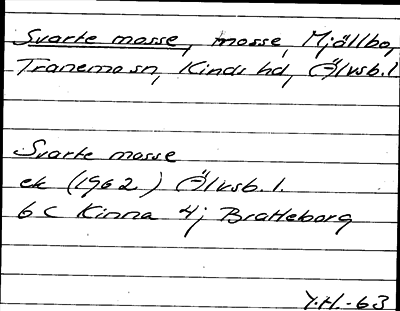 Svarte mosse, mosse, Mjällbo,
Tranemo sn, Kinds hd, Älvsb. l
Svarte mosse
ek (1962) Älvsb. l.
6 C Kinna 4j Bratteborg
Y.H.-63